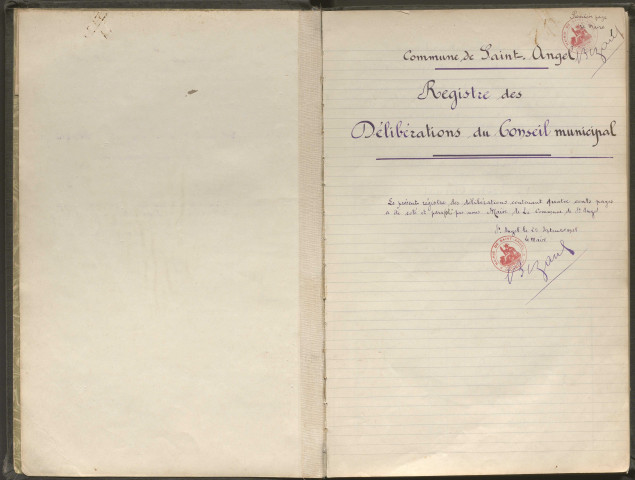 Première page
Le Maire
Commune de Saint-Angel
Registre des
Délibérations du Conseil municipal
Le présent régistre des délibérations contenant quatre cents pages
a été coté et paraphé par nous Maire de la Commune de St Angel
St Angel le
Le Maire
Bizard